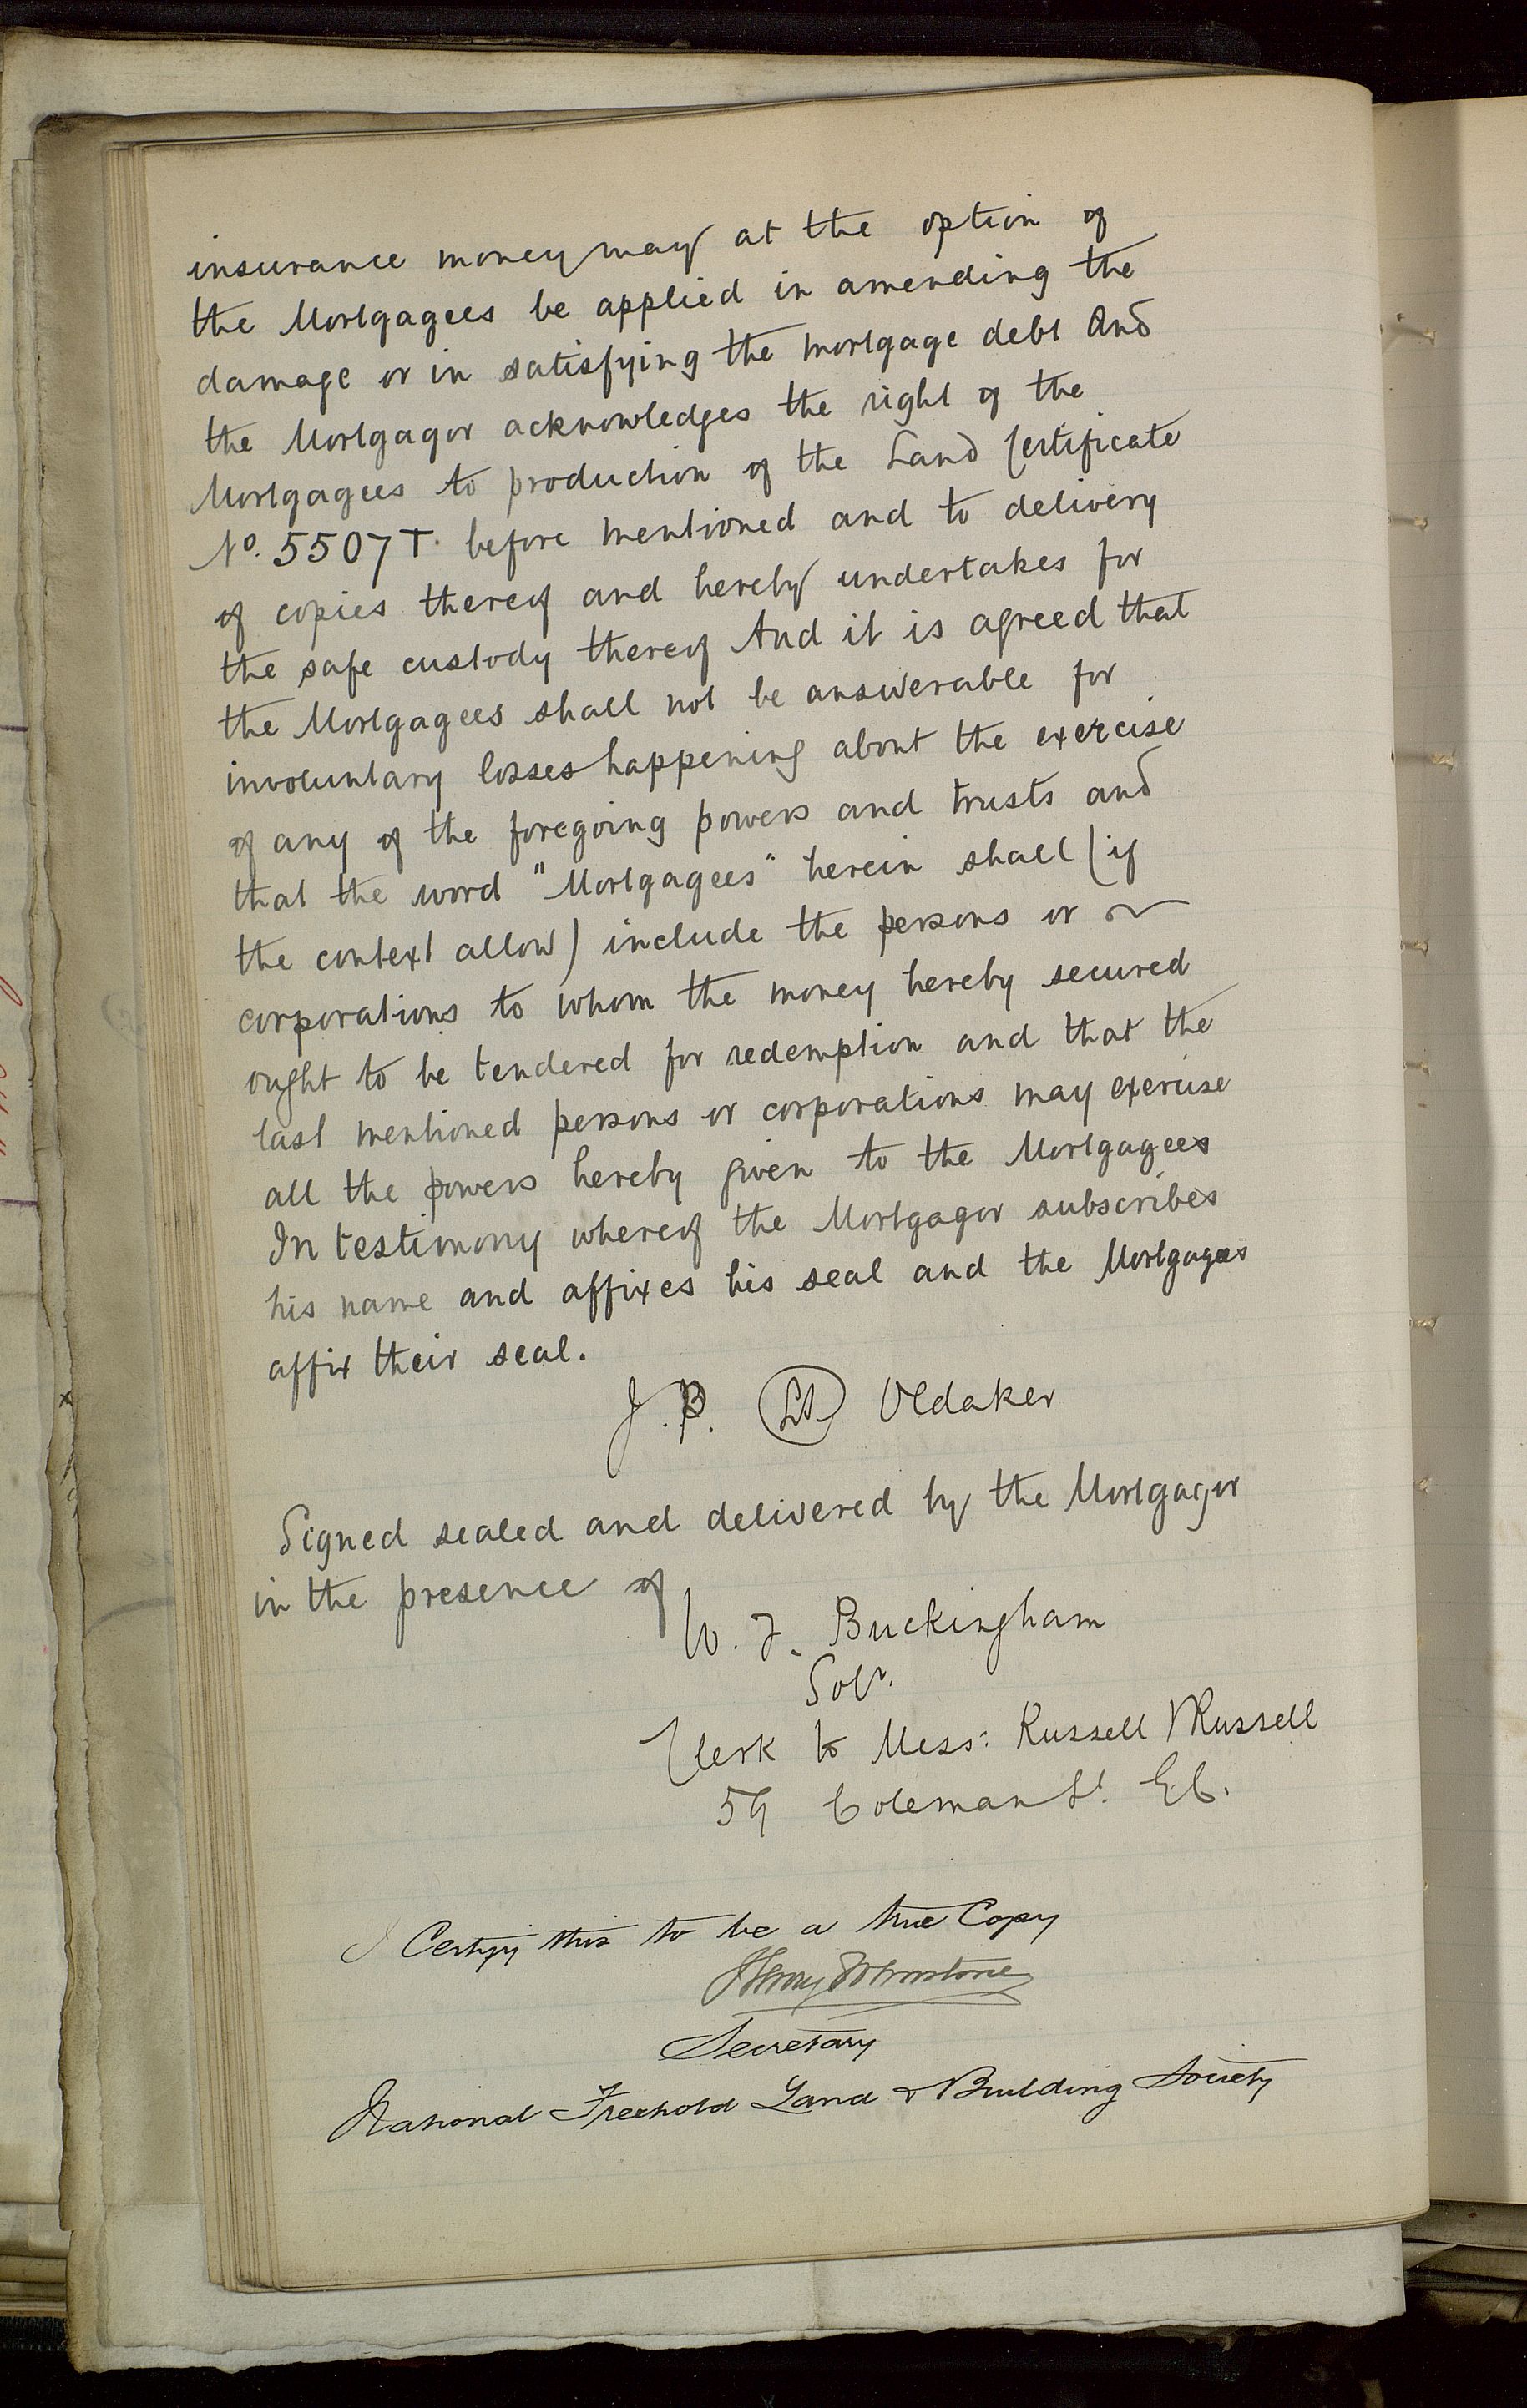 insurance money may at the option of
the Mortgagees be applied in amending the
damage or in satisfying the mortgage debt And
the Mortgagor acknowledges the right of the
Mortgagees to production of the Land Certificate
No. 5507 T. before mentioned and to delivery
of copies thereof and hereby undertakes for
the safe custody thereof And it is agreed that
the Mortgagees shall not be answerable for
involuntary losses happening about the exercise
of any of the foregoing powers and trusts and
that the word "Mortgagees" herein shall (if
the context allow) include the persons or
corporations to whom the money hereby secured
ought to be tendered for redemption and that the
last mentioned persons or corporations may exercise
all the powers hereby given to the Mortgagees
In testimony whereof the Mortgagor subscribes
his name and affixes his seal and the Mortgagees
affix their seal.
J. B. LS Oldaker
Signed sealed and delivered by the Mortgagor
in the presence of
W. F. Buckingham
Solr.
Clerk to Mess: Russell & Russell
59 Coleman St. E.C.
I Certify this to be a true Copy
Henry
Secretary
National Freehold Land & Building Society